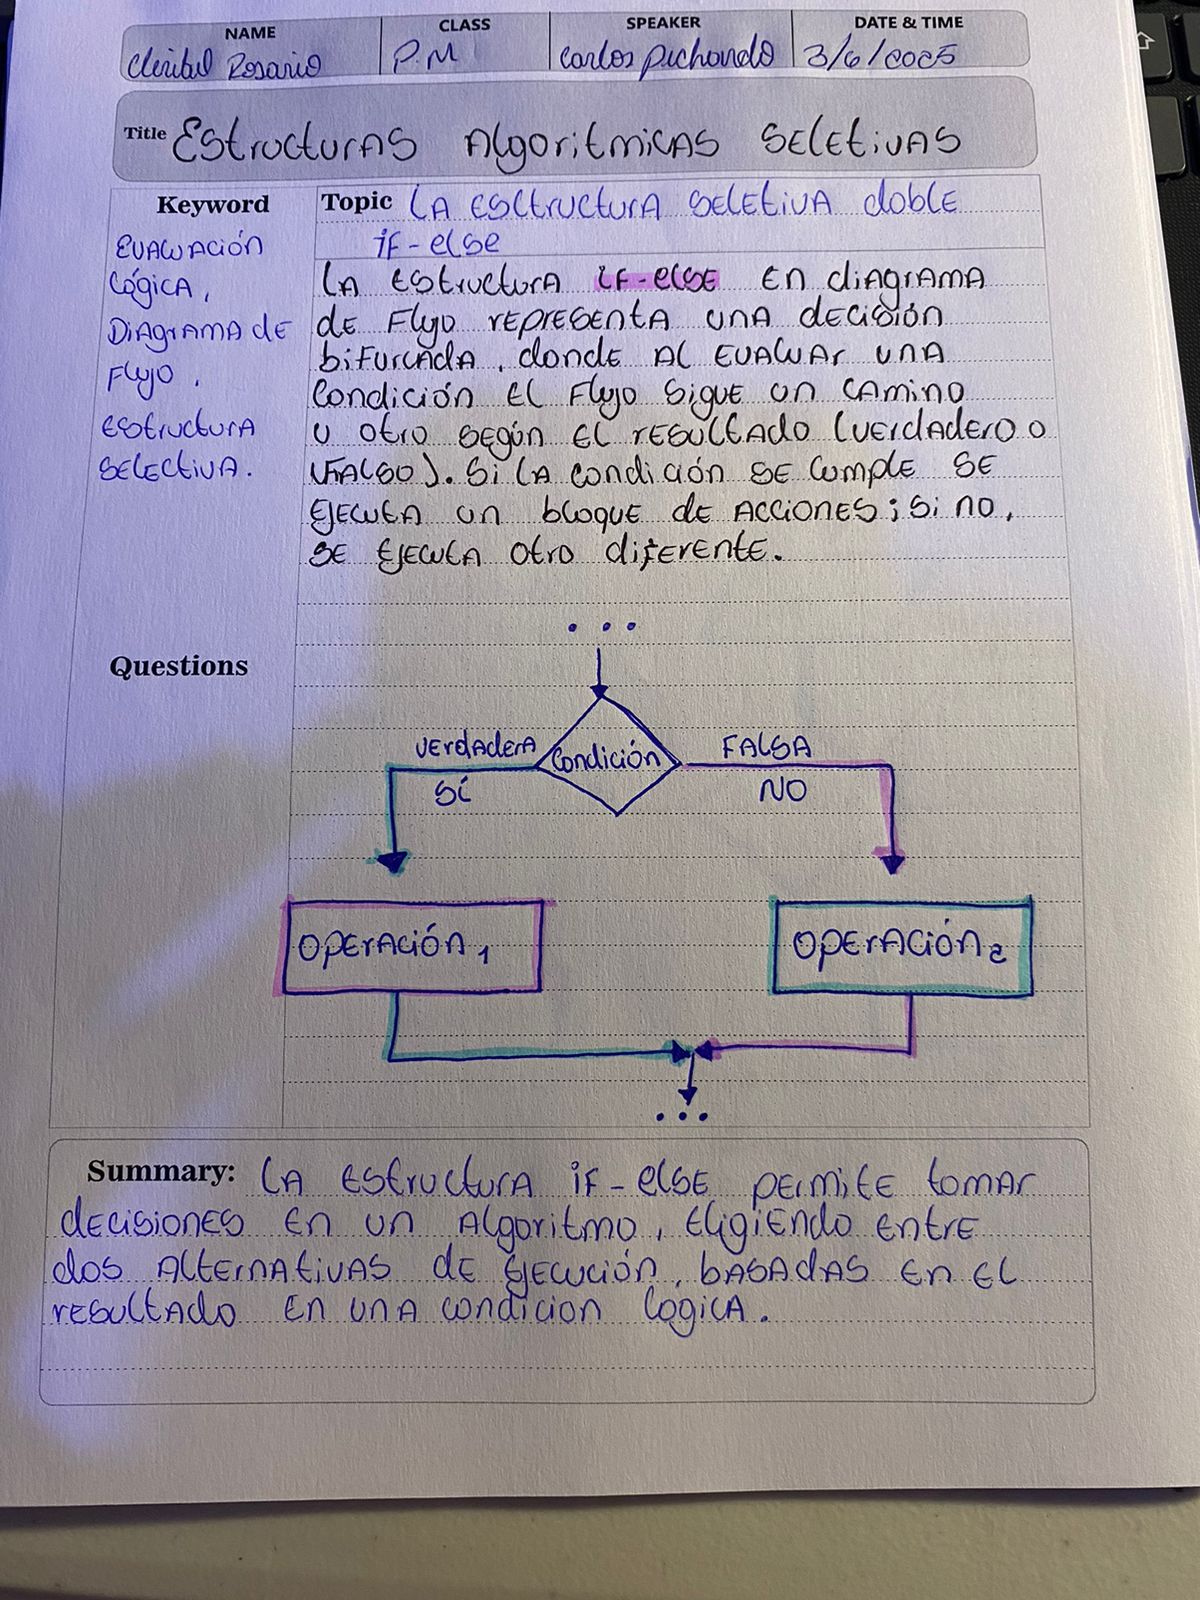 NAME CLASS SPEAKER DATE & TIME
Rosario P.M Carlos Pichardo 3/6/2025
Title Estructuras Algoritmicas Seletivas
Keyword
Evaluación
Lógica,
Diagrama de
Flujo,
Estructura
Selectiva.
Topic La esctructura seletiva doble
if-else
La estructura if-else en diagrama
de Flujo representa una decisión
bifurcada, donde al evaluar una
Condición el Flujo sigue un camino
u otro según el resultado (verdadero o
Falso). Si la condición se cumple se
ejecuta un bloque de acciones; si no,
se ejecuta otro diferente.
...
Questions
Verdadera Condición FALSA
Sí NO
Operación 1 Operación 2
...
Summary: La estructura if-else permite tomar
decisiones en un algoritmo, eligiendo entre
dos alternativas de ejecución, basadas en el
resultado en una condicion logica.